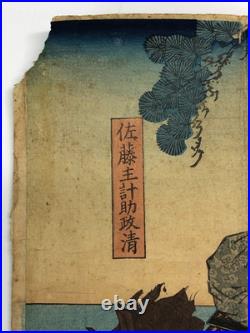 佐藤主計助政清